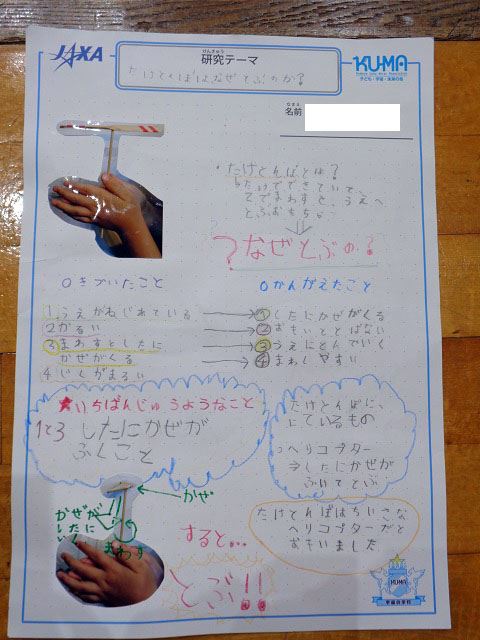 JAXA
けんきゅう
研究テーマ
たけとんぼはなぜとぶのか?
KUMA
なまえ
名前
・たけとんぼとは?
たけでできていて、
てでまわすと、うえへ
とぶおもちゃ
?なぜとぶの?
○きづいたこと
1 うえがねじれている
2 かるい
3 まわすとしたに
かぜがくる
4 じくがまるい
○かんがえたこと
① したにかぜがくる
② おもいととばない
③ うえにとんでいく
④ まわしやすい
★いちばんじゅうようなこと
1と3 したにかぜが
ふくこと
たけとんぼに、
にているもの
ヘリコプター
⇒したにかぜが
ふいてとぶ
かぜ
かぜが
したに
いく
まわす
すると…
とぶ!!
たけとんぼはちいさな
ヘリコプターだと
おもいました
KUMA
宇宙の学校